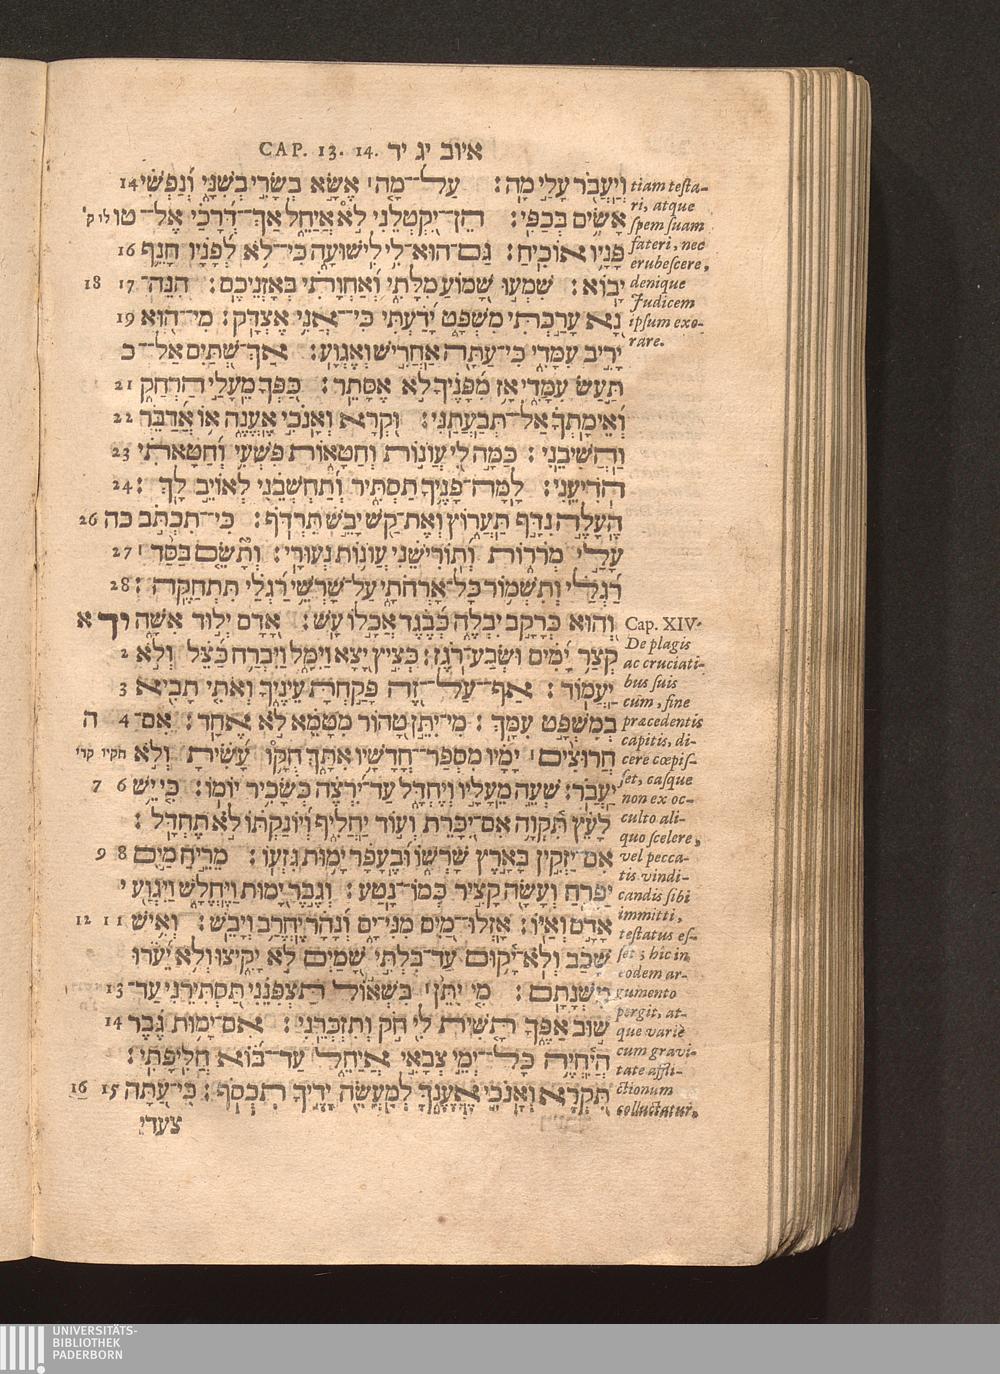 CAP. 13. 14. איוב יג יד
וְיַעֲבֹר עָלַי מָה׃ עַל־מָה׀ אֶשָּׂא בְשָׂרִי בְשִׁנָּי וְנַפְשִׁי 14
אָשִׂים בְּכַפִּי׃ הֵן־יִקְטְלֵנִי לֹא אֲיַחֵל אַךְ־דְּרָכַי אֶל־ טו לו ק'
פָּנָיו אוֹכִיחַ׃ גַּם־הוּא־לִי לִישׁוּעָה כִּי־לֹא לְפָנָיו חָנֵף 16
יָבוֹא׃ שִׁמְעוּ שָׁמוֹעַ מִלָּתִי וְאַחֲוָתִי בְּאָזְנֵיכֶם׃ הִנֵּה־ 17 18
נָא עָרַכְתִּי מִשְׁפָּט יָדַעְתִּי כִּי־אֲנִי אֶצְדָּק׃ מִי־הוּא 19
יָרִיב עִמָּדִי כִּי־עַתָּה אַחֲרִישׁ וְאֶגְוָע׃ אַךְ־שְׁתַּיִם אַל־ כ
תַּעַשׂ עִמָּדִי אָז מִפָּנֶיךָ לֹא אֶסָּתֵר׃ כַּפְּךָ מֵעָלַי הַרְחַק 21
וְאֵימָתְךָ אַל־תְּבַעֲתַנִּי׃ וּקְרָא וְאָנֹכִי אֶעֱנֶה אוֹ אֲדַבֵּר 22
וַהֲשִׁיבֵנִי׃ כַּמָּה לִי עֲוֹנוֹת וְחַטָּאוֹת פִּשְׁעִי וְחַטָּאתִי 23
הוֹדִיעֵנִי׃ לָמָּה־פָנֶיךָ תַסְתִּיר וְתַחְשְׁבֵנִי לְאוֹיֵב לָךְ׃ 24
הֶעָלֶה נִדָּף תַּעֲרוֹץ וְאֶת־קַשׁ יָבֵשׁ תִּרְדֹּף׃ כִּי־תִכְתֹּב כה 26
עָלַי מְרֹרוֹת וְתוֹרִישֵׁנִי עֲוֹנוֹת נְעוּרָי׃ וְתָשֵׂם בַּסַּד׀ 27
רַגְלַי וְתִשְׁמוֹר כָּל־אָרְחֹתָי עַל־שָׁרְשֵׁי רַגְלַי תִּתְחַקֶּה׃ 28
וְהוּא כְּרָקָב יִבְלֶה כְּבֶגֶד אֲכָלוֹ עָשׁ׃ אָדָם יְלוּד אִשָּׁה יד א
קְצַר יָמִים וּשְׂבַע־רֹגֶז׃ כְּצִיץ יָצָא וַיִּמָּל וַיִּבְרַח כַּצֵּל וְלֹא 2
יַעֲמוֹד׃ אַף־עַל־זֶה פָּקַחְתָּ עֵינֶיךָ וְאֹתִי תָבִיא 3
בְמִשְׁפָּט עִמָּךְ׃ מִי־יִתֵּן טָהוֹר מִטָּמֵא לֹא אֶחָד׃ אִם־ 4 ה
חֲרוּצִים׀ יָמָיו מִסְפַּר־חֳדָשָׁיו אִתָּךְ חֻקָּו עָשִׂיתָ וְלֹא חקיו קרי
יַעֲבֹר׃ שְׁעֵה מֵעָלָיו וְיֶחְדָּל עַד־יִרְצֶה כְּשָׂכִיר יוֹמוֹ׃ כִּי יֵשׁ 6 7
לָעֵץ תִּקְוָה אִם־יִכָּרֵת וְעוֹד יַחֲלִיף וְיוֹנַקְתּוֹ לֹא תֶחְדָּל׃
אִם־יַזְקִין בָּאָרֶץ שָׁרְשׁוֹ וּבֶעָפָר יָמוּת גִּזְעוֹ׃ מֵרֵיחַ מַיִם 8 9
יַפְרִחַ וְעָשָׂה קָצִיר כְּמוֹ־נָטַע׃ וְגֶבֶר יָמוּת וַיֶּחֱלָשׁ וַיִּגְוַע י
אָדָם וְאַיּוֹ׃ אָזְלוּ־מַיִם מִנִּי־יָם וְנָהָר יֶחֱרַב וְיָבֵשׁ׃ וְאִישׁ 11 12
שָׁכַב וְלֹא־יָקוּם עַד־בִּלְתִּי שָׁמַיִם לֹא יָקִיצוּ וְלֹא יֵעֹרוּ
מִשְּׁנָתָם׃ מִי יִתֵּן׀ בִּשְׁאוֹל תַּצְפִּנֵנִי תַּסְתִּירֵנִי עַד־ 13
שׁוּב אַפֶּךָ תָּשִׁית לִי חֹק וְתִזְכְּרֵנִי׃ אִם־יָמוּת גֶּבֶר 14
הֲיִחְיֶה כָּל־יְמֵי צְבָאִי אֲיַחֵל עַד־בּוֹא חֲלִיפָתִי׃
תִּקְרָא וְאָנֹכִי אֶעֱנֶךָּ לְמַעֲשֵׂה יָדֶיךָ תִכְסֹף׃ כִּי־עַתָּה 15 16
צעדי
tiam testa-
ri, atque
spem suam
fateri, nec
erubescere,
denique
Judicem
ipsum exo-
rare.
Cap. XIV.
De plagis
ac cruciati-
bus suis
cum, sine
præcedentis
capitis, di-
cere cœpis-
set, easque
non ex oc-
culto ali-
quo scelere,
vel pecca-
tis vindi-
candis sibi
immitti,
testatus es-
set; hic in
eodem ar-
gumento
pergit, at-
que variè
cum gravi-
tate affli-
ctionum
colluctatur.
UNIVERSITÄTS-
BIBLIOTHEK
PADERBORN